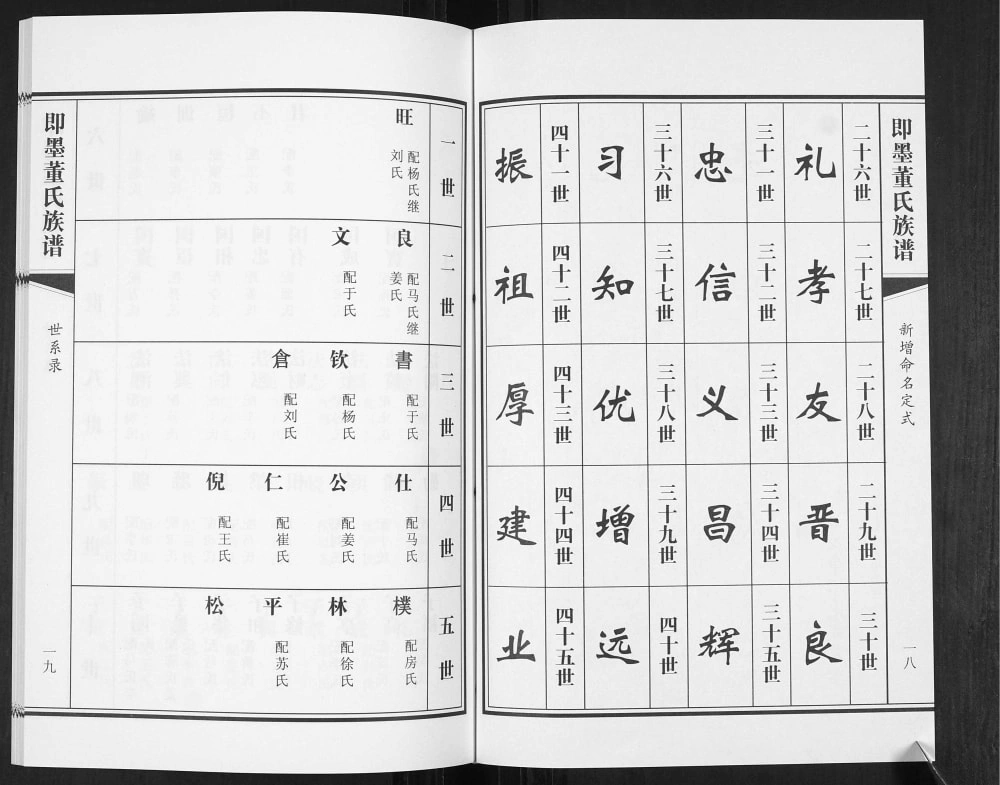 即墨董氏族谱
新增命名定式
一八
二十六世
二十七世
二十八世
二十九世
三十世
礼
孝
友
晋
良
三十一世
三十二世
三十三世
三十四世
三十五世
忠
信
义
昌
辉
三十六世
三十七世
三十八世
三十九世
四十世
习
知
优
增
远
四十一世
四十二世
四十三世
四十四世
四十五世
振
祖
厚
建
业
一世
旺
配杨氏继
刘氏
二世
良
配马氏继
姜氏
文
配于氏
三世
書
配于氏
钦
配杨氏
倉
配刘氏
四世
仕
配马氏
公
配姜氏
仁
配崔氏
倪
配王氏
五世
樸
配房氏
林
配徐氏
平
配苏氏
松
即墨董氏族谱
世系录
一九